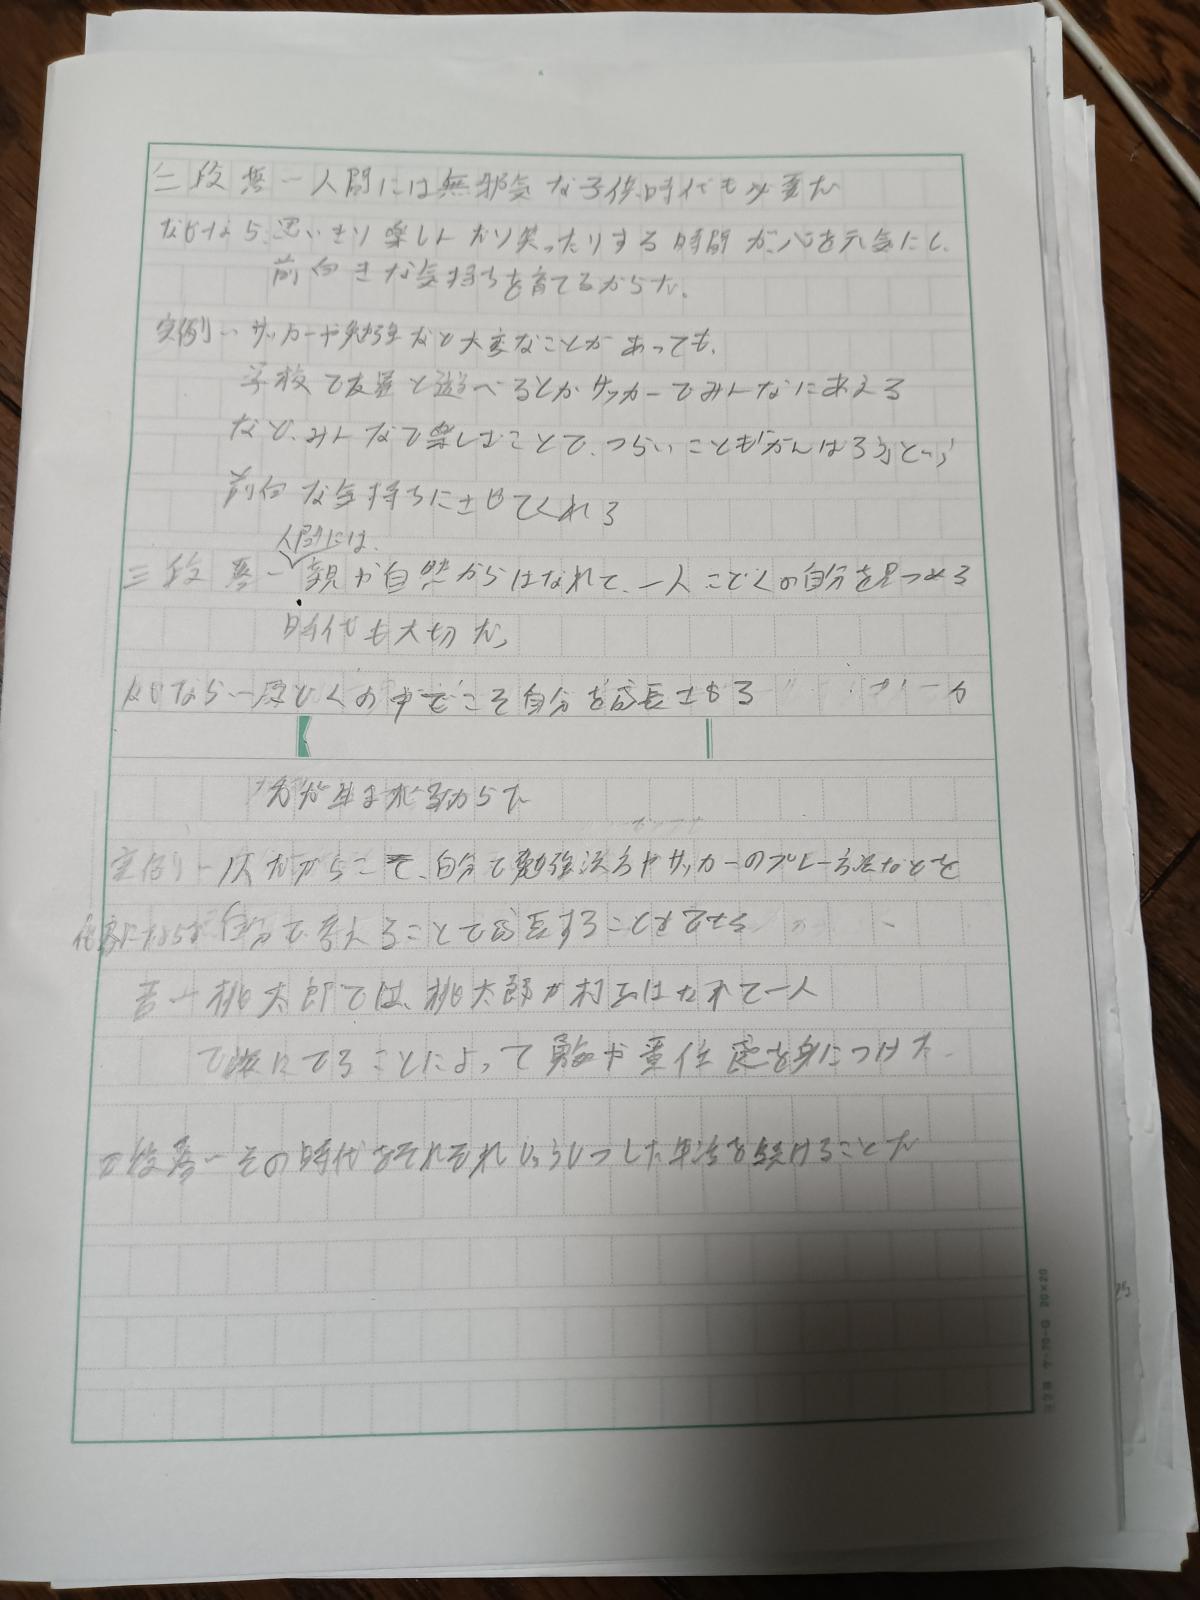 二段落ー人間には無邪気な子供時代も必要だ
なぜなら、思いきり楽しんだり笑ったりする時間が、心を元気にし、
前向きな気持ちを育てるからだ。
実例ーサッカーや勉強など大変なことがあっても、
学校で友達と遊べるとかサッカーでみんなにあえる
など、みんなで楽しむことで、つらいことも がんばろうという
前向な気持ちにさせてくれる
人間には、
三段落ー親か自然からはなれて、一人こどくの自分を見つめる
時代も大切だ。
なぜならーこどくの中でこそ自分を成長させる
力が生まれるからだ
実例ー だからこそ、自分で勉強法方やサッカーのプレー方法などを
自分で考えることで成長することをできる
昔ー桃太郎では、桃太郎が村をはなれて一人
で旅にでることによって勇気や責任感を身につけた。
四段落ーその時代をそれぞれじゅうじつした生活を続けることだ
20×20